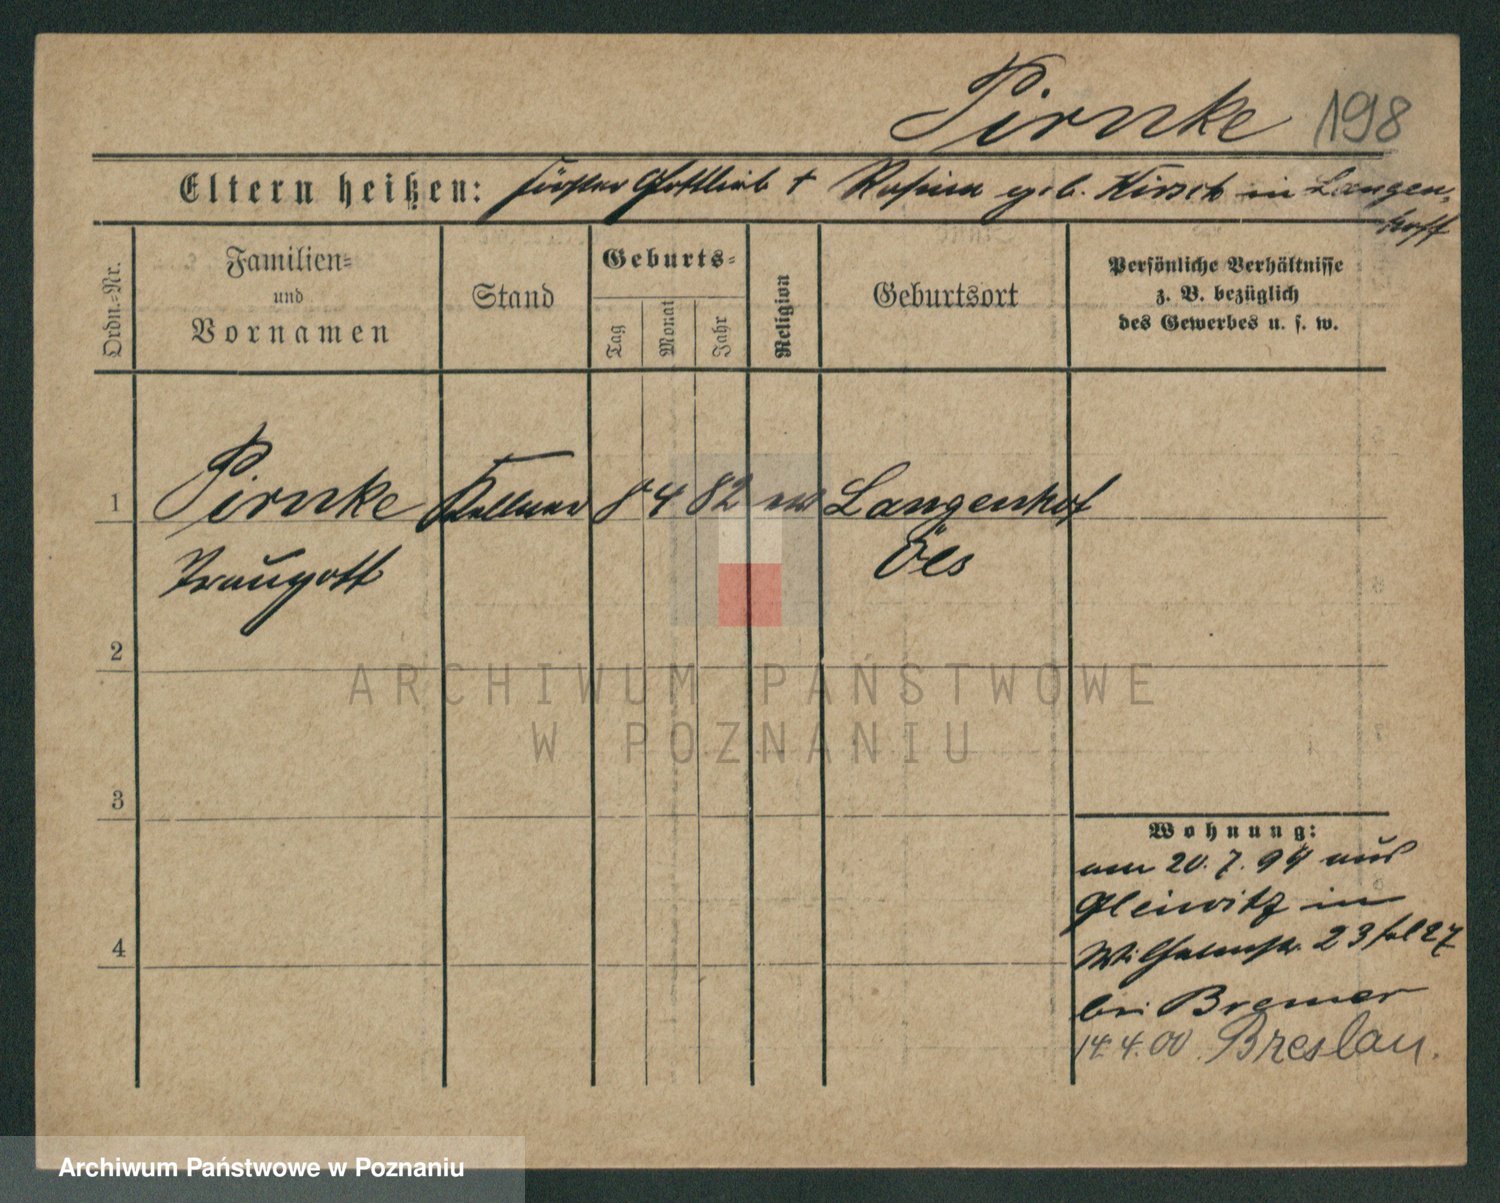 Pirnke 198
Eltern heißen: Förster Gottlieb + Rosina geb. Kirsch in Langen-
hoff
Ordn.=Nr.
Familien=
und
Vornamen
Stand
Geburts=
Tag
Monat
Jahr
Religion
Geburtsort
Persönliche Verhältnisse
z. B. bezüglich
des Gewerbes u. s. w.
1 Pirnke Kellner 8 4 82 ev Langenhof
Traugott Öls
2
3
4
Wohnung:
am 20. 7. 99 aus
Gleiwitz in
Wilhelmstr. 23 27
bei Bremer
14. 4. 00 Breslau.
ARCHIWUM PAŃSTWOWE
W POZNANIU
Archiwum Państwowe w Poznaniu